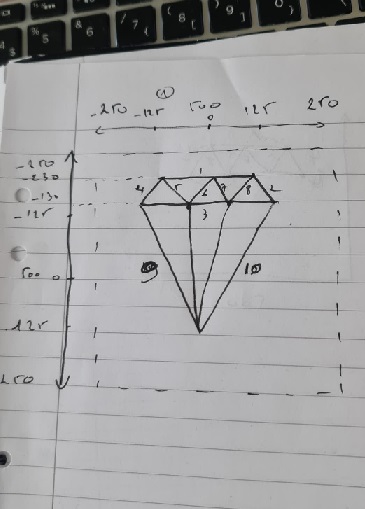 ①
-250 -125 500 125 250
0
-250
-230
-130
-125
500 0
125
250
1
4 5 6 7 8 2
3
9 10